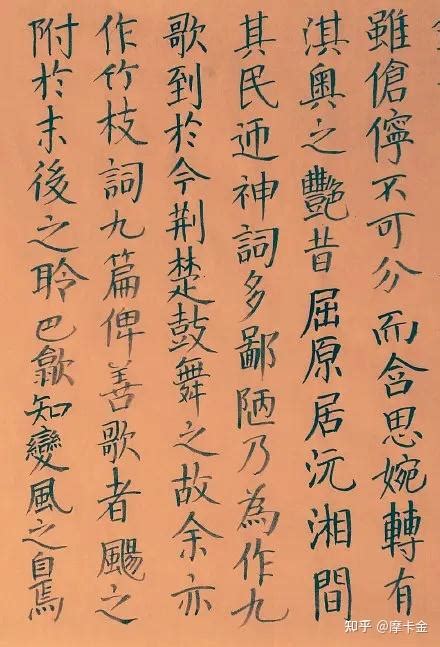 雖傖儜不可分而含思婉轉有
淇奧之艷昔屈原居沅湘間
其民迎神詞多鄙陋乃為作九
歌到於今荆楚鼓舞之故余亦
作竹枝詞九篇俾善歌者颺之
附於末後之聆巴歈知變風之自焉
知乎 @摩卡金